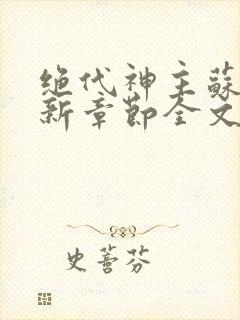 绝代神主蘇
新章節全文
史蕃芬